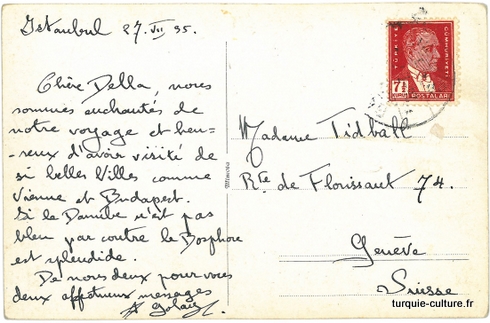 Istanbul 27. VII 35.
Chère Della, nous
sommes enchantés de
notre voyage et heu-
-reux d'avoir visité de
si belles Villes comme
Vienne et Budapest.
Si le Danube n'est pas
bleu par contre le Bosphore
est splendide.
De nous deux pour vous
deux affectueux messages
TÜRKİYE CUMHURİYETİ
7½
POSTALARI
Madame Tidball
Rte de Florissant 74.
Genève
Suisse
turquie-culture.fr